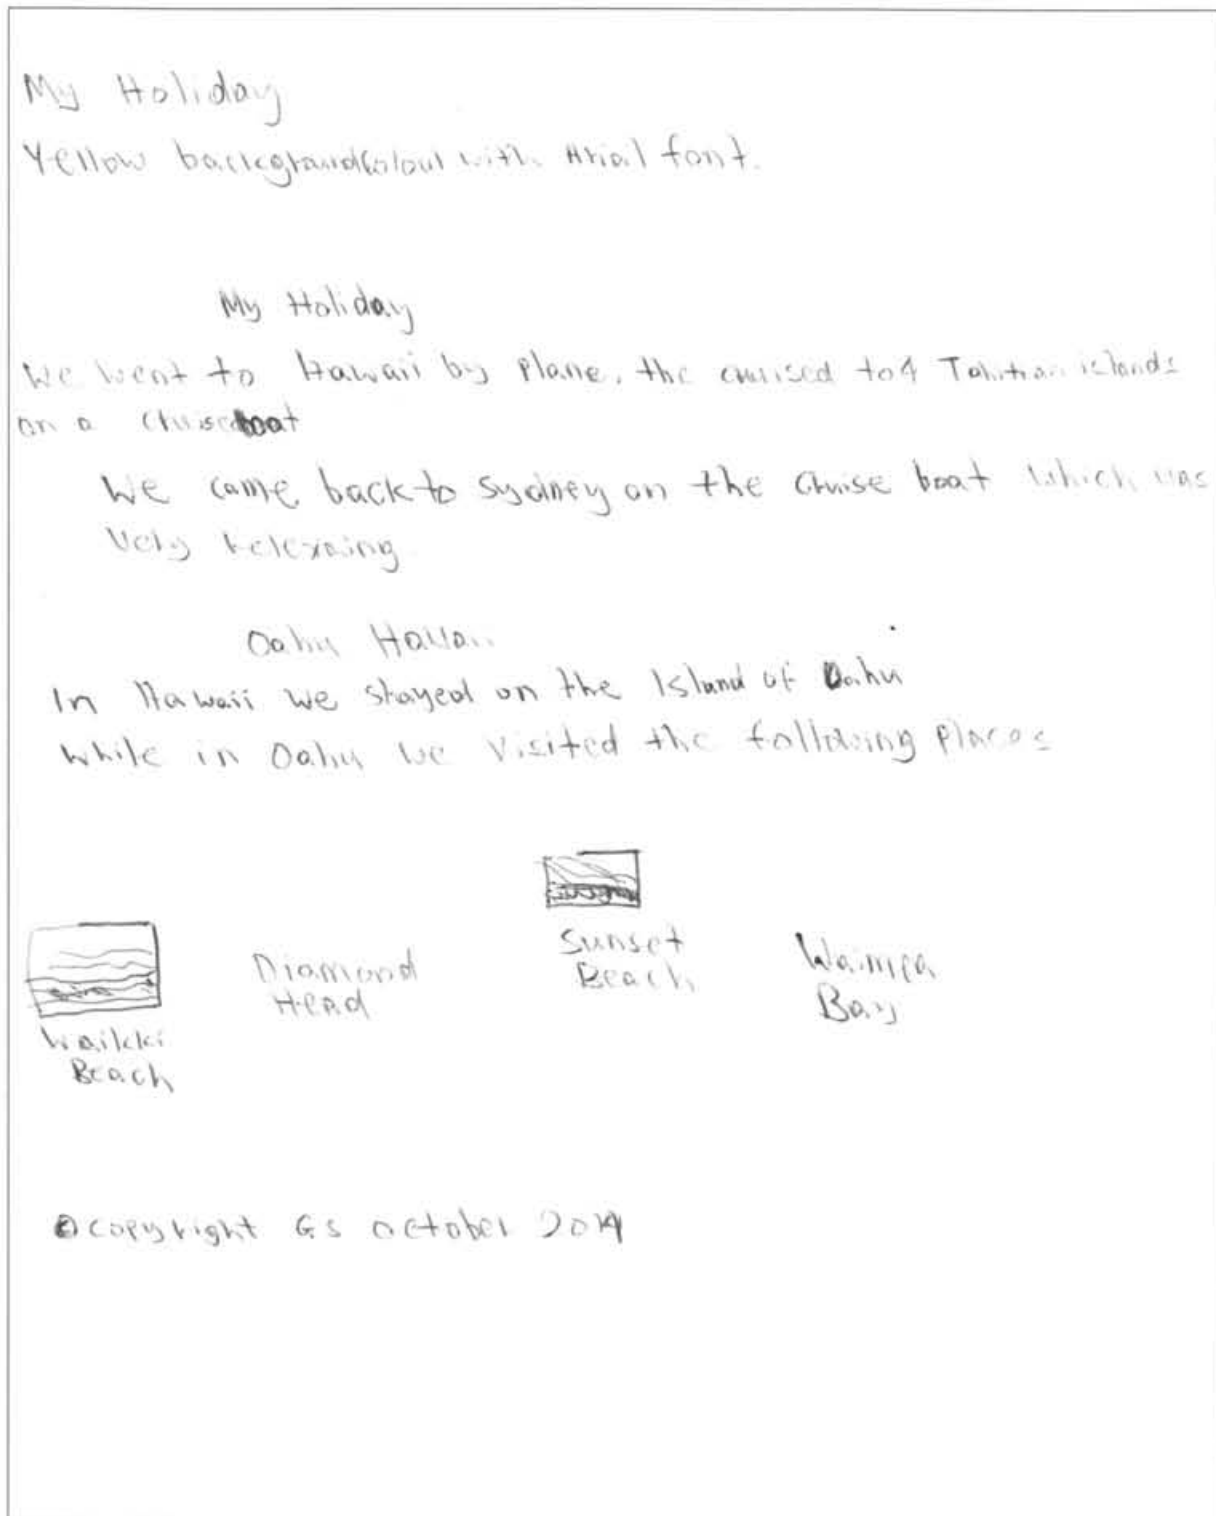 My Holiday
Yellow backgrandColour with Arial font.
My Holiday
We went to Hawaii by plane, the cruised to 4 Tahitian islands
on a cruiseboat
We came back to Sydney on the cruise boat which was
very relexaing
Oahu Hawaii
In Hawaii we stayed on the Island of Oahu
While in Oahu we visited the following places
Sunset
Beach
Waikki
Beach
Diamond
Head
Waimea
Bay
© copyright GS october 2014